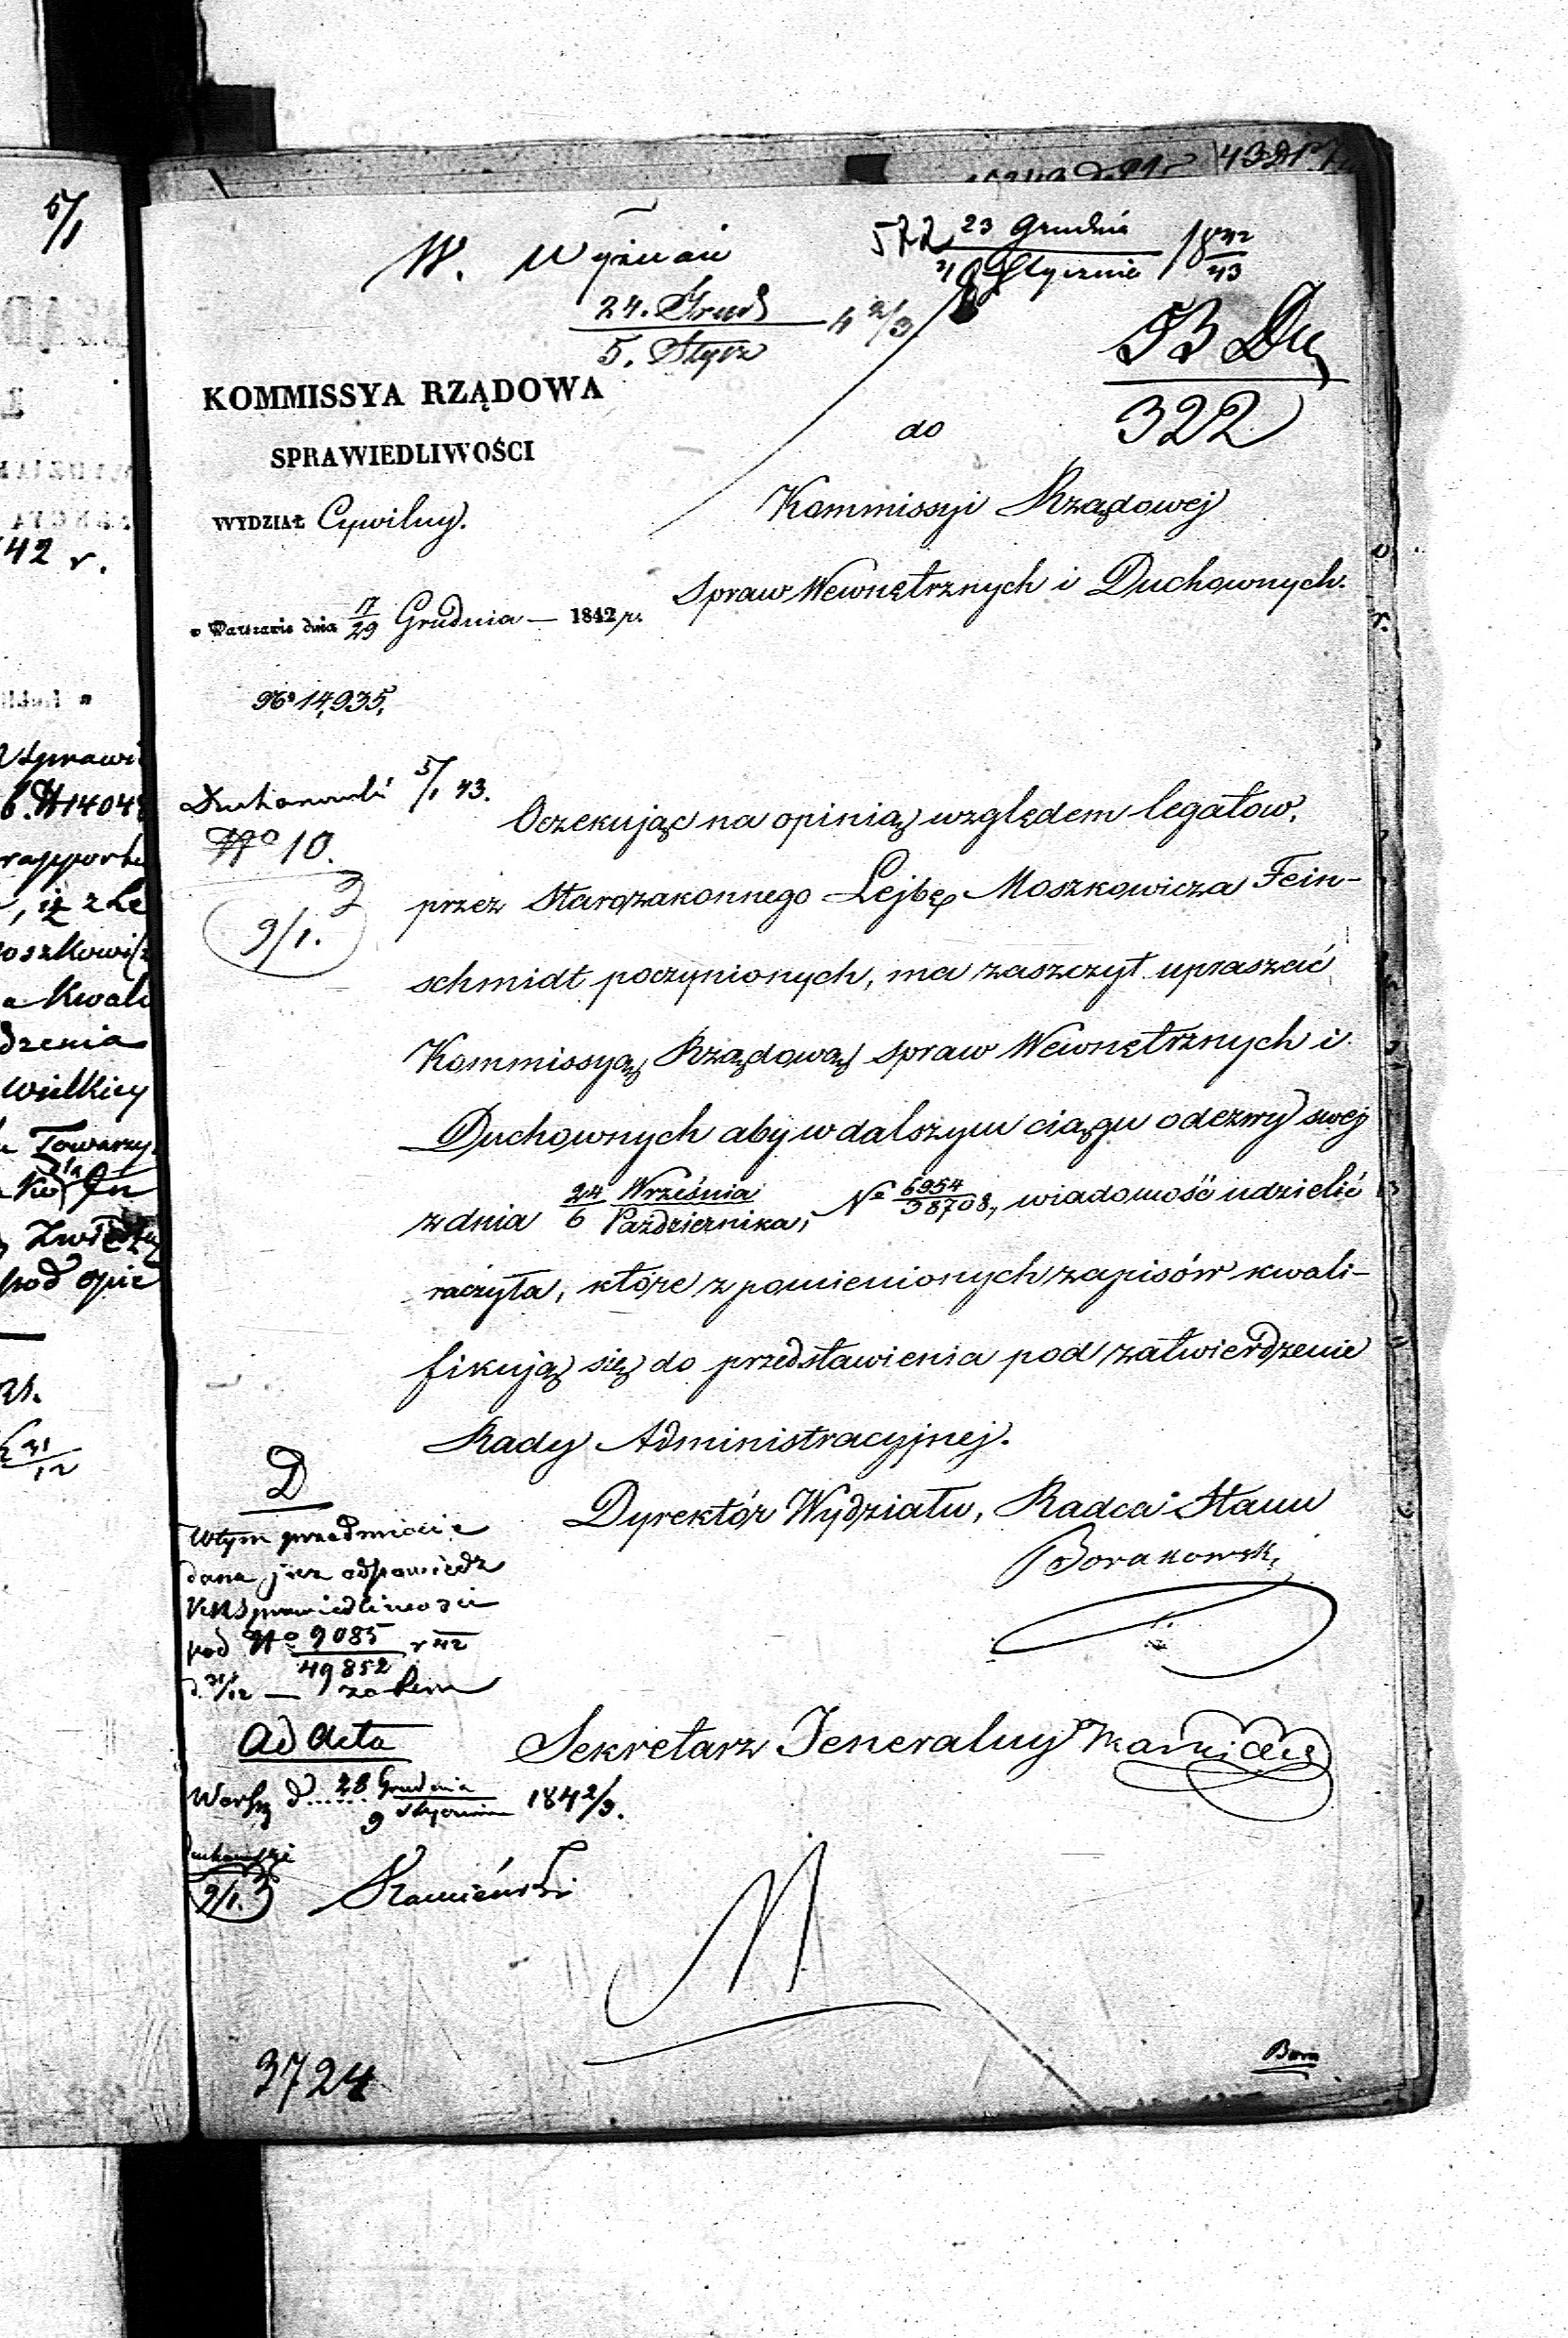 5/1
42 r.
6. N 14048
, iż z Le
oszkowicz
a kwali
dzenia
Wielkiey
Towarzy
pod opie
W.
24. Grud
5. Stycz
4 2/3
522 23 Grudnia
4 Stycznia 18 42/43
53 Du
322
KOMMISSYA RZĄDOWA
SPRAWIEDLIWOŚCI
WYDZIAŁ Cywilny.
w Warszawie dnia 17/29 Grudnia — 1842 r.
No 14,935,
do
Kommissyi Rządowej
Spraw Wewnętrznych i Duchownych.
5/1 43.
No 10.
9/1.
Oczekując na opinią względem legatow,
przez Starozakonnego Lejbę Moszkowicza Fein-
schmidt poczynionych, ma zaszczyt upraszać
Kommissyą Rządową spraw Wewnętrznych i
Duchownych aby w dalszym ciągu odezwy swej
z dnia 24 Września / 6 Października, No 6954/38708, wiadomość udzielić
raczyła, które z pomienionych zapisów kwali-
fikują się do przedstawienia pod zatwierdzenie
Rady Administracyjnej.
Dyrektór Wydziału, Radca Stanu
Borakowski
D
W tym przedmiocie
dana już odpowiedz
KRSprawiedliwosci
pod No 9085/49852 r 42
d. 31/12 — zatem
Ad Acta
Warsz d...... 28 Grudnia / 9 Stycznia 1842/3.
9/1.
Kamieński
Sekretarz Jeneralny
3724
Born